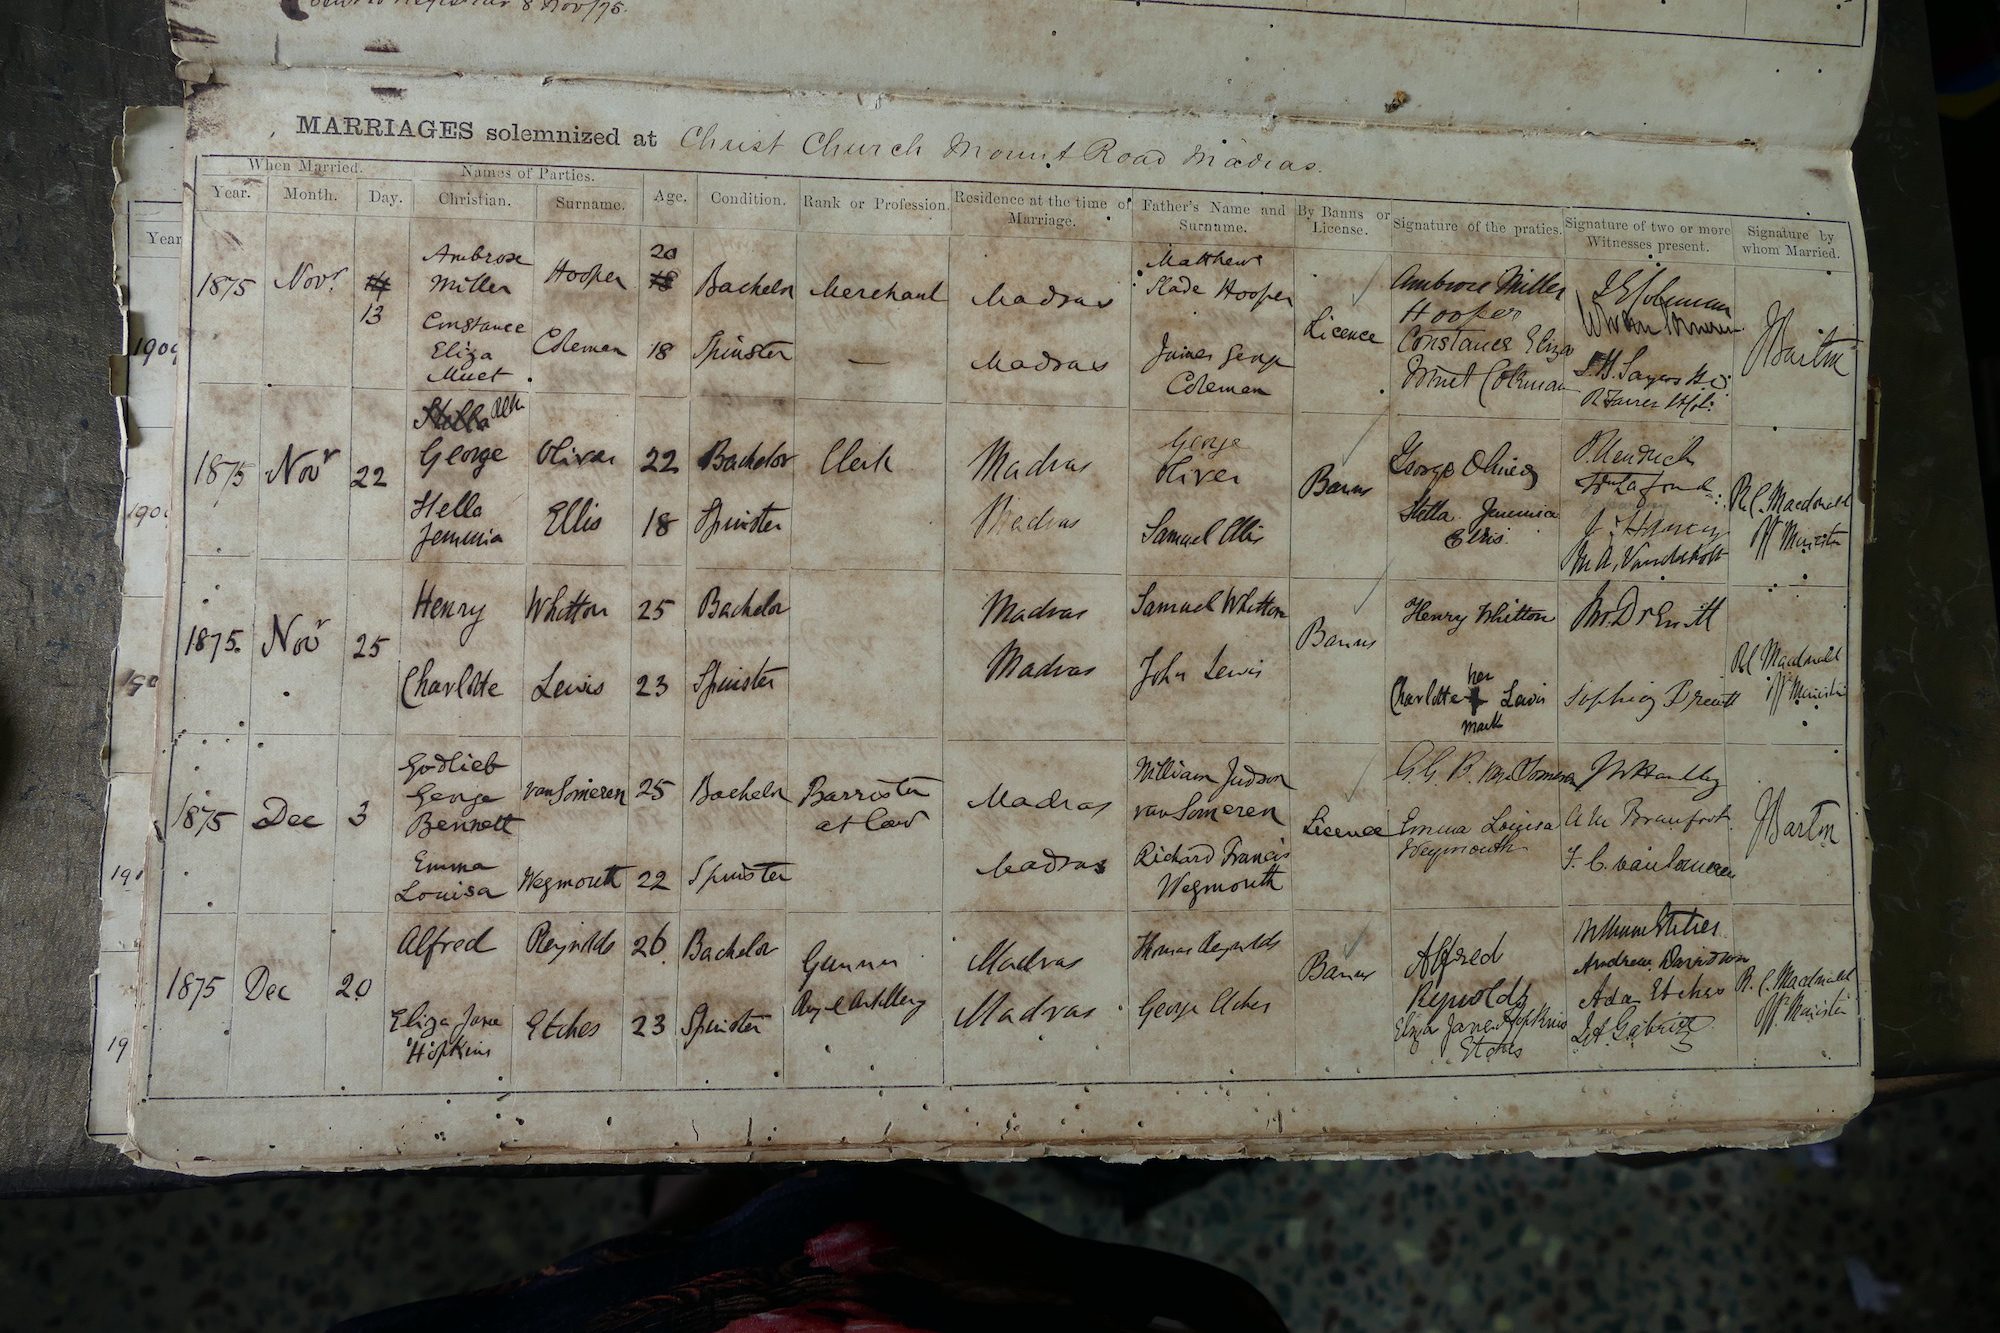 8 Nov/75.
MARRIAGES solemnized at Christ Church Mount Road Madras.
When Married.
Names of Parties.
Year.
Month.
Day.
Christian.
Surname.
Age.
Condition.
Rank or Profession.
Residence at the time of
Marriage.
Father's Name and
Surname.
By Banns or
License.
Signature of the praties.
Signature of two or more
Witnesses present.
Signature by
whom Married.
Year
1875
Novr
14
13
Ambrose
Miller
Hooper
20
18
Bachelor
Merchant
Madras
Matthew
Slade Hooper
Licence
Ambrose Miller
Hooper
Constance
Eliza
Muet
Coleman
18
Spinster
—
Madras
James George
Coleman
Constance Eliza
Muet Coleman
1875
Novr
22
Stella
George
Oliver
22
Bachelor
Clerk
Madras
George
Oliver
Banns
George Oliver
Stella
Jemima
Ellis
18
Spinster
Madras
Samuel Ellis
Stella Jemima
Ellis
R.C. Macdonald
Offg Minister
1875.
Novr
25
Henry
Whitton
25
Bachelor
Madras
Samuel Whitton
Banns
Henry Whitton
Charlotte
Lewis
23
Spinster
Madras
John Lewis
her
Charlotte + Lewis
mark
R C Macdonald
Offg Minister
1875
Dec
3
Godlieb
George
Bennett
van Someren
25
Bachelor
Barrister
at Law
Madras
William Judson
van Someren
Licence
G. G. B. van Someren
Emma
Louisa
Weymouth
22
Spinster
Madras
Richard Francis
Weymouth
Emma Louisa
Weymouth
J. C. van Someren
1875
Dec
20
Alfred
Reynolds
26
Bachelor
Gunner
Royal Artillery
Madras
Thomas Reynolds
Banns
Alfred
Reynolds
Eliza Jane
Hopkins
Etches
23
Spinster
Madras
George Etches
Eliza Jane Hopkins
Etches
Andrew Davidson
Ada Etches
R. C. Macdonald
Offg Minister